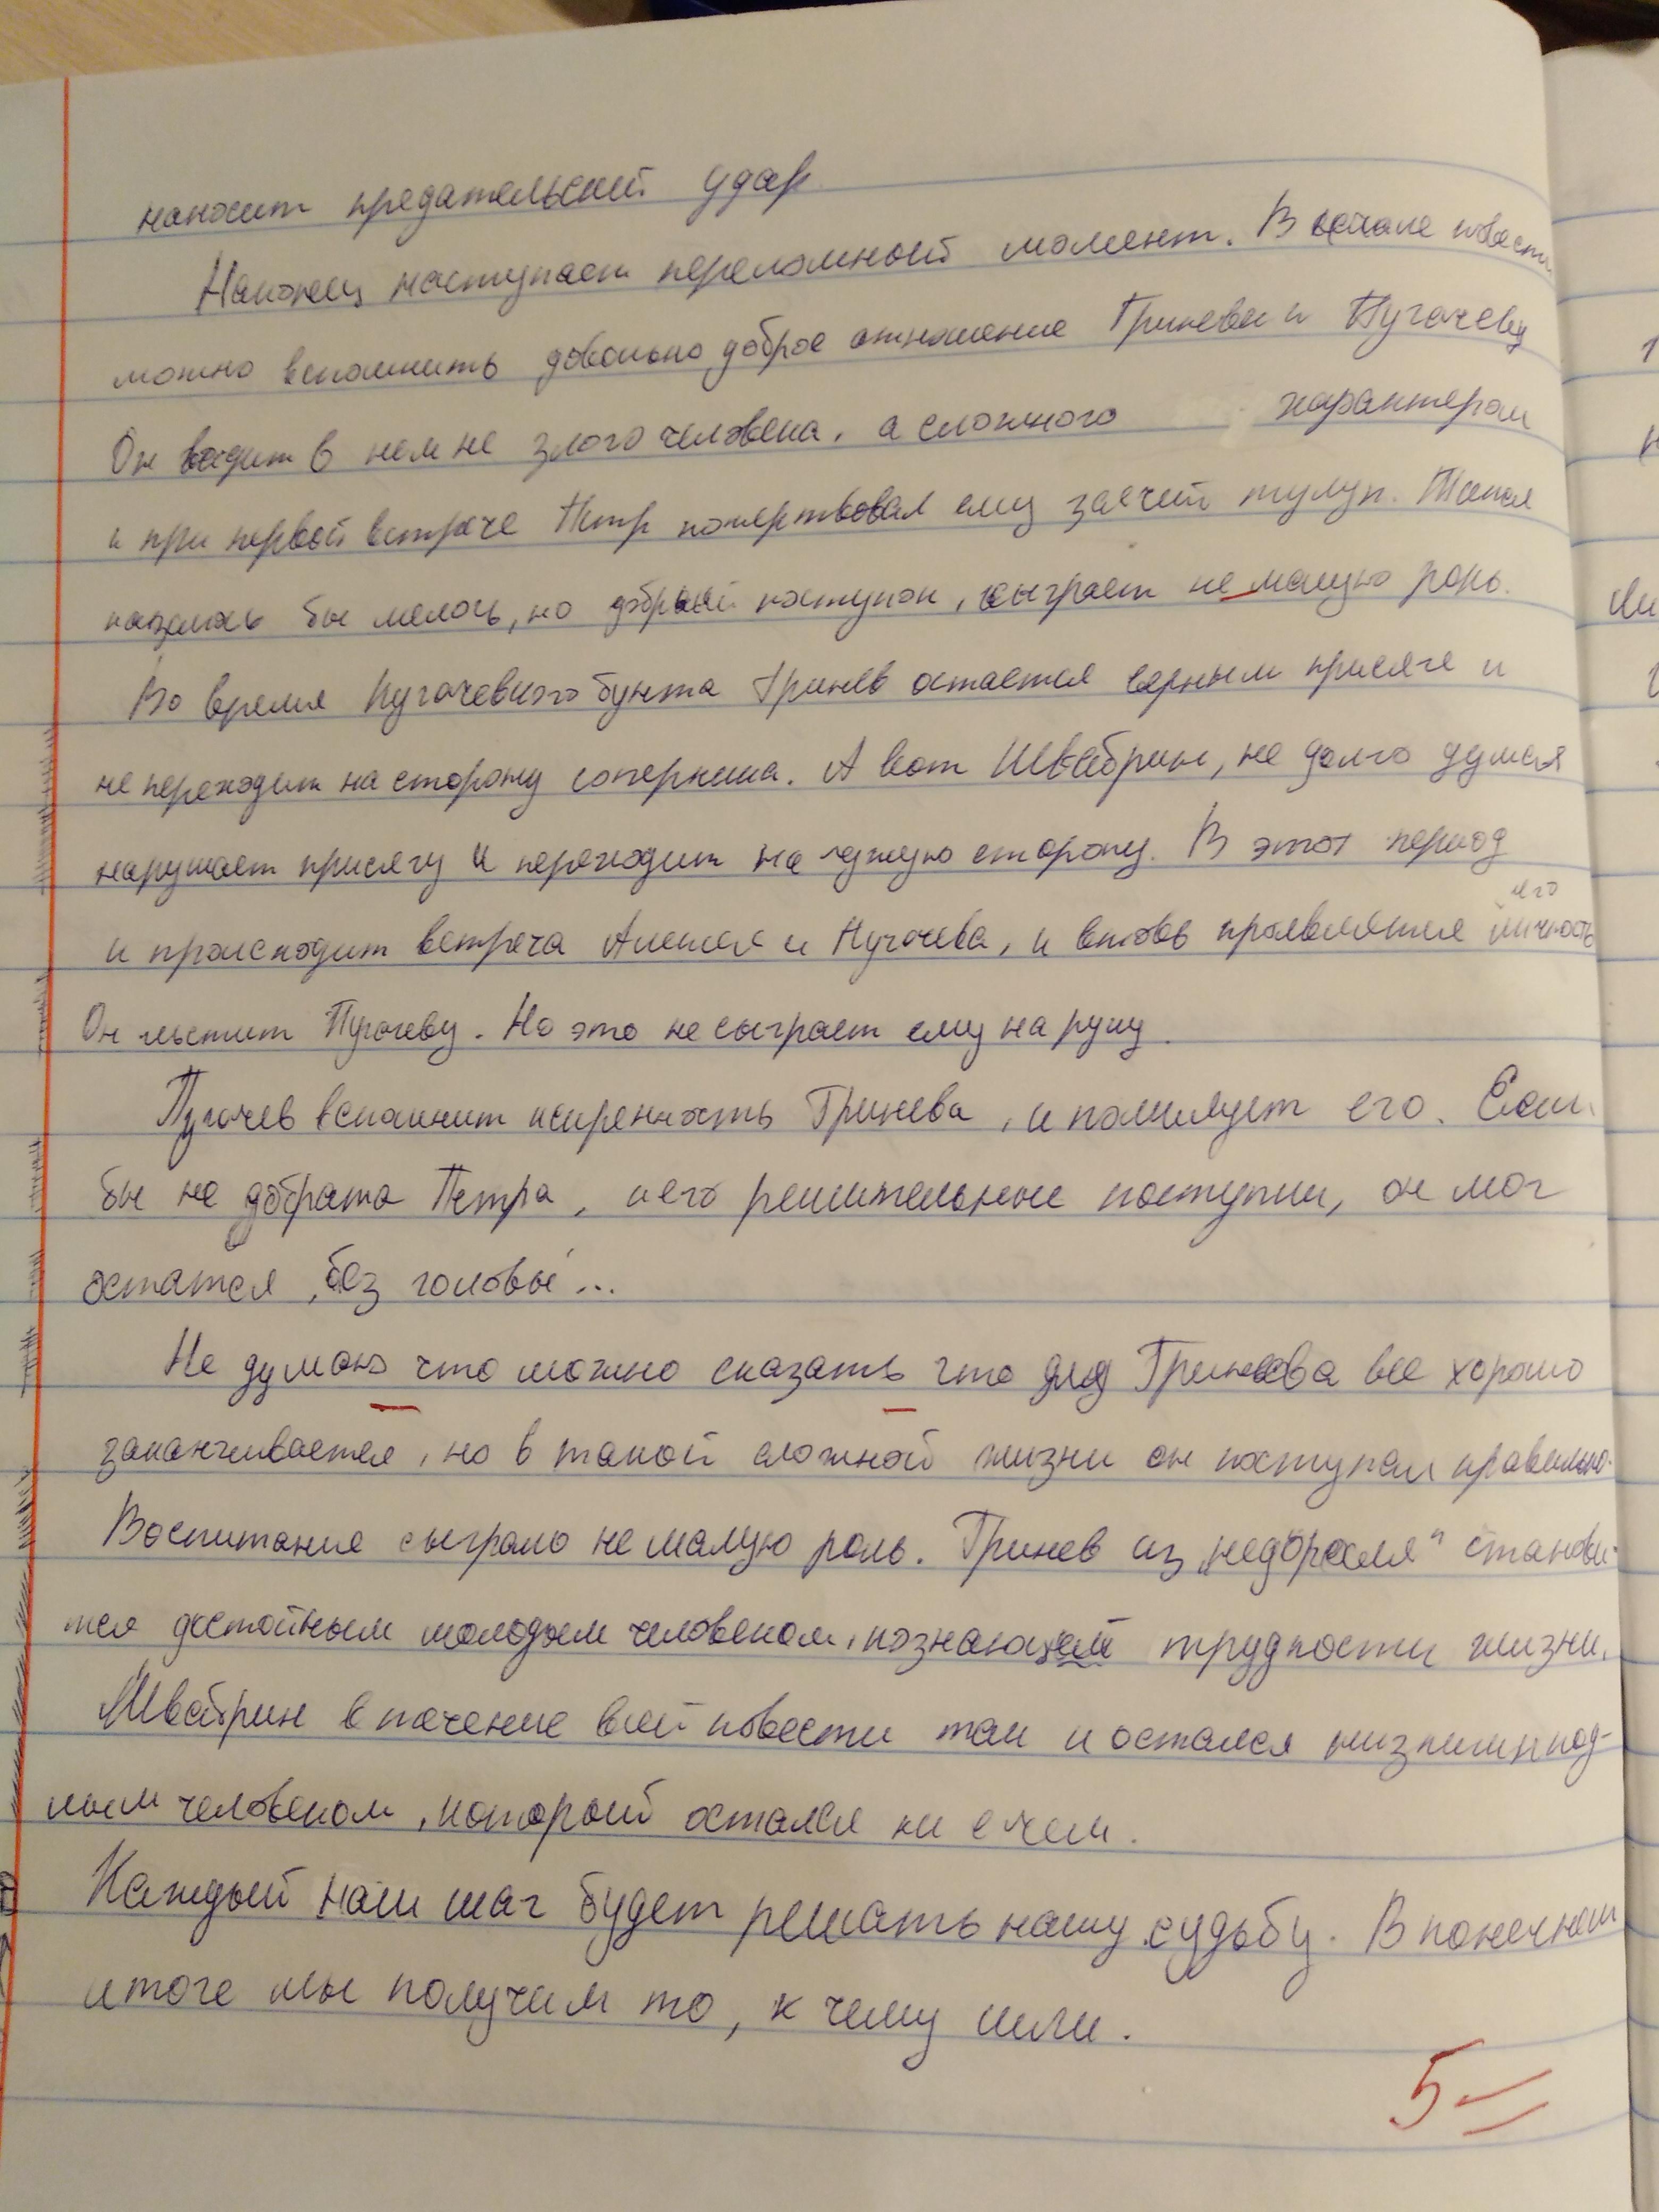 наносит предательский удар
Наконец наступает переломный момент. В начале повести
можно вспомнить довольно доброе отношение Гринева к Пугачеву
Он видит в нем не злого человека, а сложного характером
и при первой встрече Петр пожертвовал ему заячий тулуп. Такая
казалась бы мелочь, но добрый поступок, сыграет не малую роль.
Во время Пугачевского бунта Гринев остается верным присяге и
не переходит на сторону соперника. А вот Швабрин, не долго думая
нарушает присягу и переходит на чужую сторону. В этот период
и происходит встреча Алексея и Пугачева, и вновь проявляется его личность
Он льстит Пугачеву. Но это не сыграет ему на руку.
Пугачев вспомнит искренность Гринева, и помилует его. Если
бы не доброта Петра, и его решительные поступки, он мог
остатся, без головы...
Не думаю что можно сказать что для Гринева все хорошо
заканчивается, но в такой сложной жизни он поступал правильно.
Воспитание сыграло не малую роль. Гринев из „недоросля" станови-
тся достойным молодым человеком, познающий трудности жизни.
Швабрин в течение всей повести так и остался
ным человеком, который остался ни с чем.
Каждый наш шаг будет решать нашу судьбу. В конечном
итоге мы получим то, к чему шли.
5=